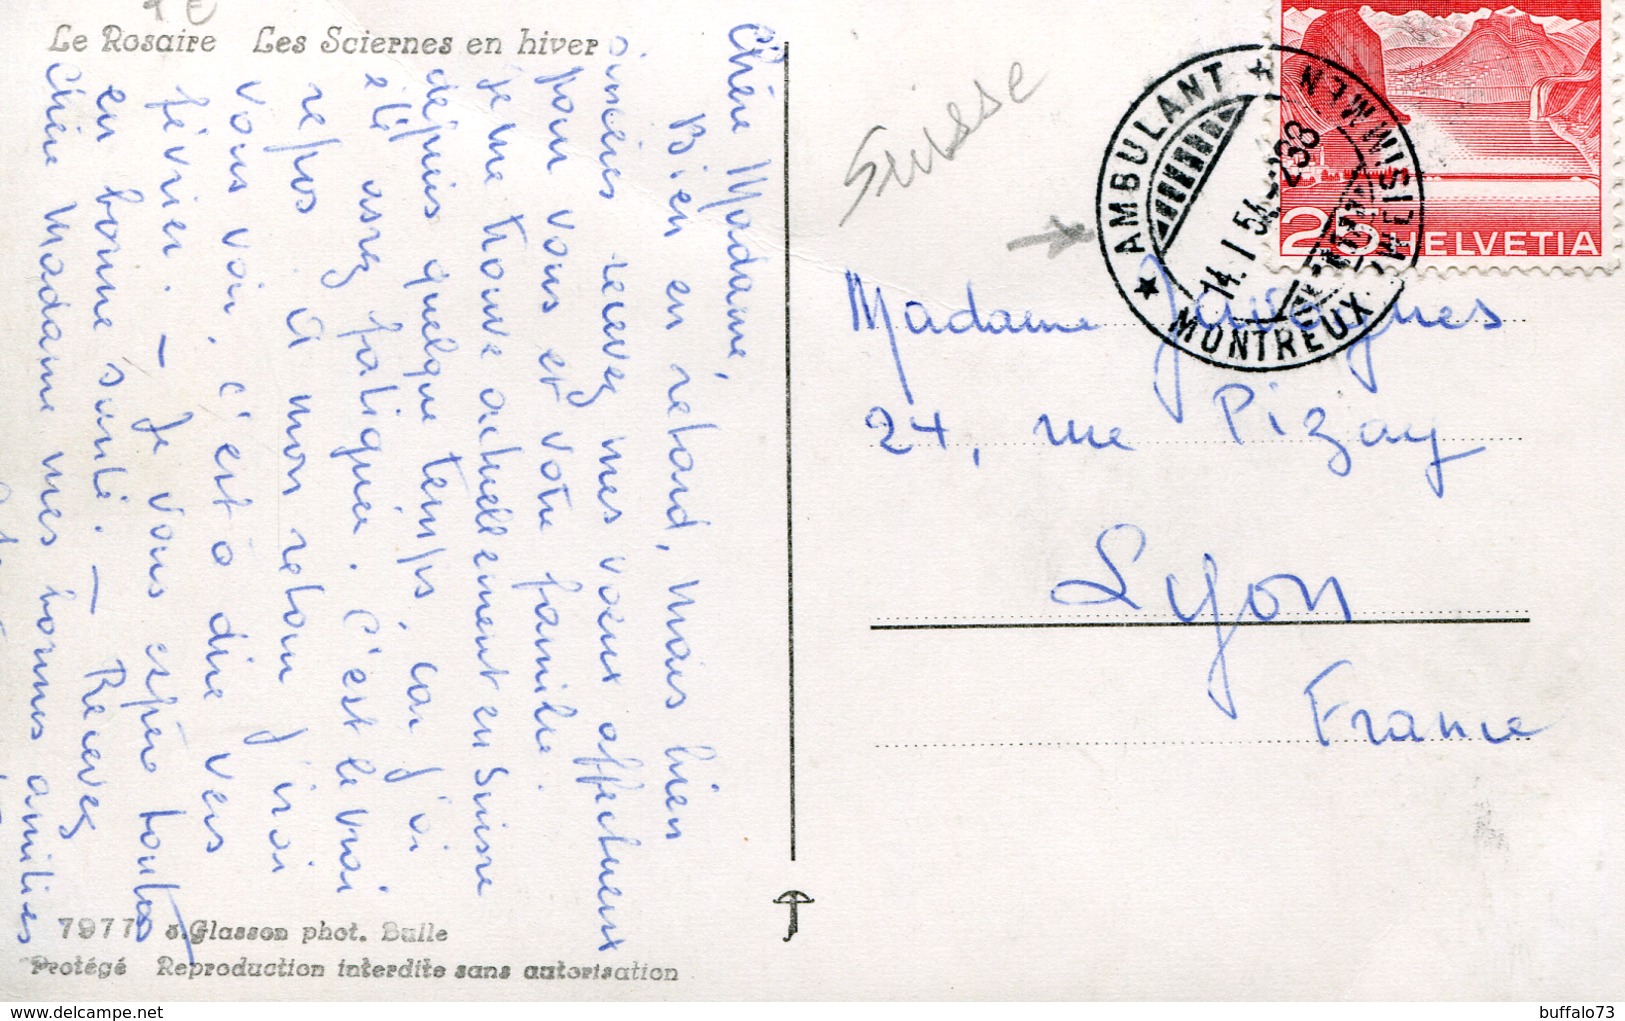 Le Rosaire Les Sciernes en hiver
Chère Madame,
Bien en retard, mais bien
sincères recevez mes vœux affectueux
pour vous et votre famille.
Je me trouve actuellement en Suisse
depuis quelque temps, car j'ai
été assez fatiguée. C'est le vrai
repos. A mon retour j'irai
vous voir, c'est à dire vers
février. — Je vous espère toutes
en bonne santé. — Recevez
Chère Madame mes bonnes amitiés
7977 Glasson phot. Bulle
Protégé Reproduction interdite sans autorisation
Suisse
AMBULANT
ZWEISIMMEN
MONTREUX
14. I 54
25 HELVETIA
Madame Javogues
24, rue Pizay
Lyon
France
buffalo73